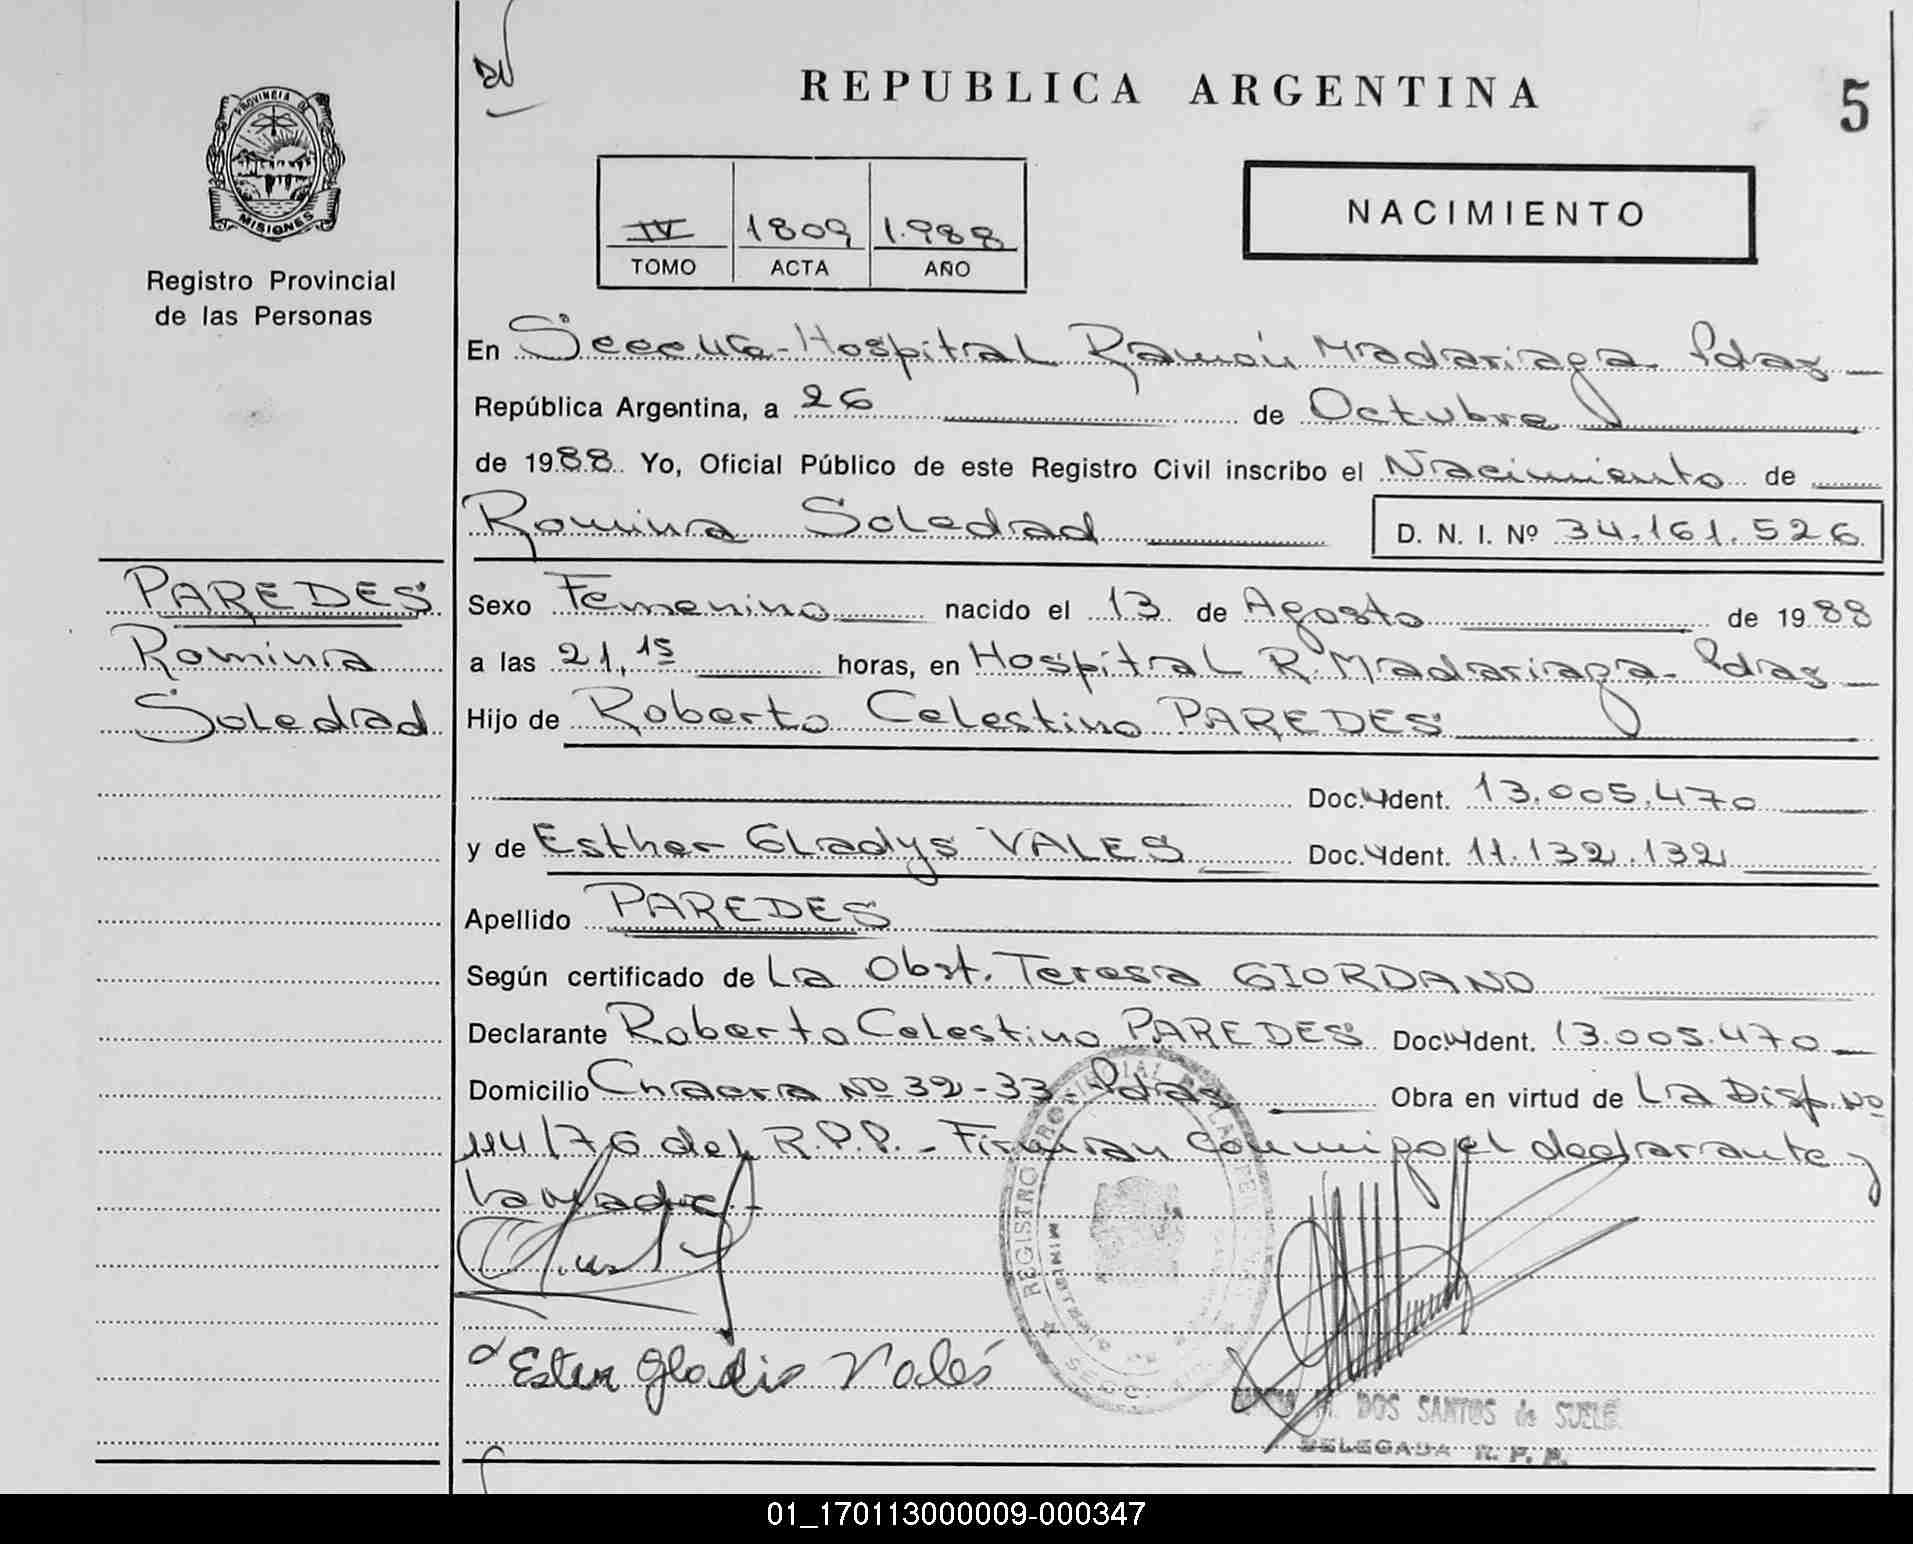 REPUBLICA ARGENTINA
5
PROVINCIA DE
MISIONES
Registro Provincial
de las Personas
IV 1809 1.988
TOMO ACTA AÑO
NACIMIENTO
En Hospital Ramón Madariaga Pdas
República Argentina, a 26 de Octubre
de 1988 Yo, Oficial Público de este Registro Civil inscribo el Nacimiento de
Romina Soledad D. N. I. Nº 34.161.526
PAREDES
Romina
Soledad
Sexo Femenino nacido el 13 de Agosto de 1988
a las 21,15 horas, en Hospital R. Madariaga - Pdas
Hijo de Roberto Celestino PAREDES
Doc. Ident. 13.005.470
y de Esther Gladys VALES Doc. Ident. 11.132.132
Apellido PAREDES
Según certificado de La Obst. Teresa GIORDANO
Declarante Roberto Celestino PAREDES Doc. Ident. 13.005.470
Domicilio Chacra Nº 32-33 - Pdas Obra en virtud de La Disp. Nº
114/76 del R.P.P. - Firman conmigo el declarante y
la Madre.-
REGISTRO PROVINCIAL DE LAS
Ester Gladis Valés
DOS SANTOS de
DELEGADA R. P. P.
01_170113000009-000347